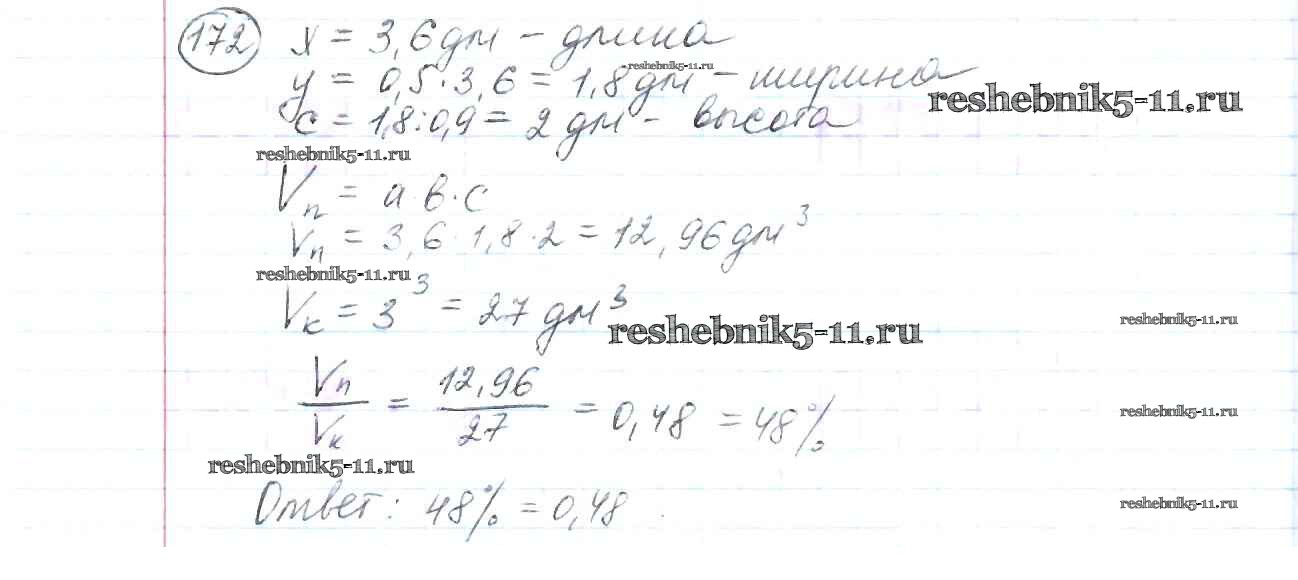 172 x = 3,6 дм - длина
reshebnik5-11.ru
y = 0,5·3,6 = 1,8 дм - ширина
reshebnik5-11.ru
c = 1,8:0,9 = 2 дм - высота
reshebnik5-11.ru
Vп = а·в·с
Vп = 3,6·1,8·2 = 12,96 дм³
reshebnik5-11.ru
Vк = 3³ = 27 дм³
reshebnik5-11.ru
reshebnik5-11.ru
Vп/Vк = 12,96/27 = 0,48 = 48%
reshebnik5-11.ru
reshebnik5-11.ru
Ответ: 48% = 0,48
reshebnik5-11.ru